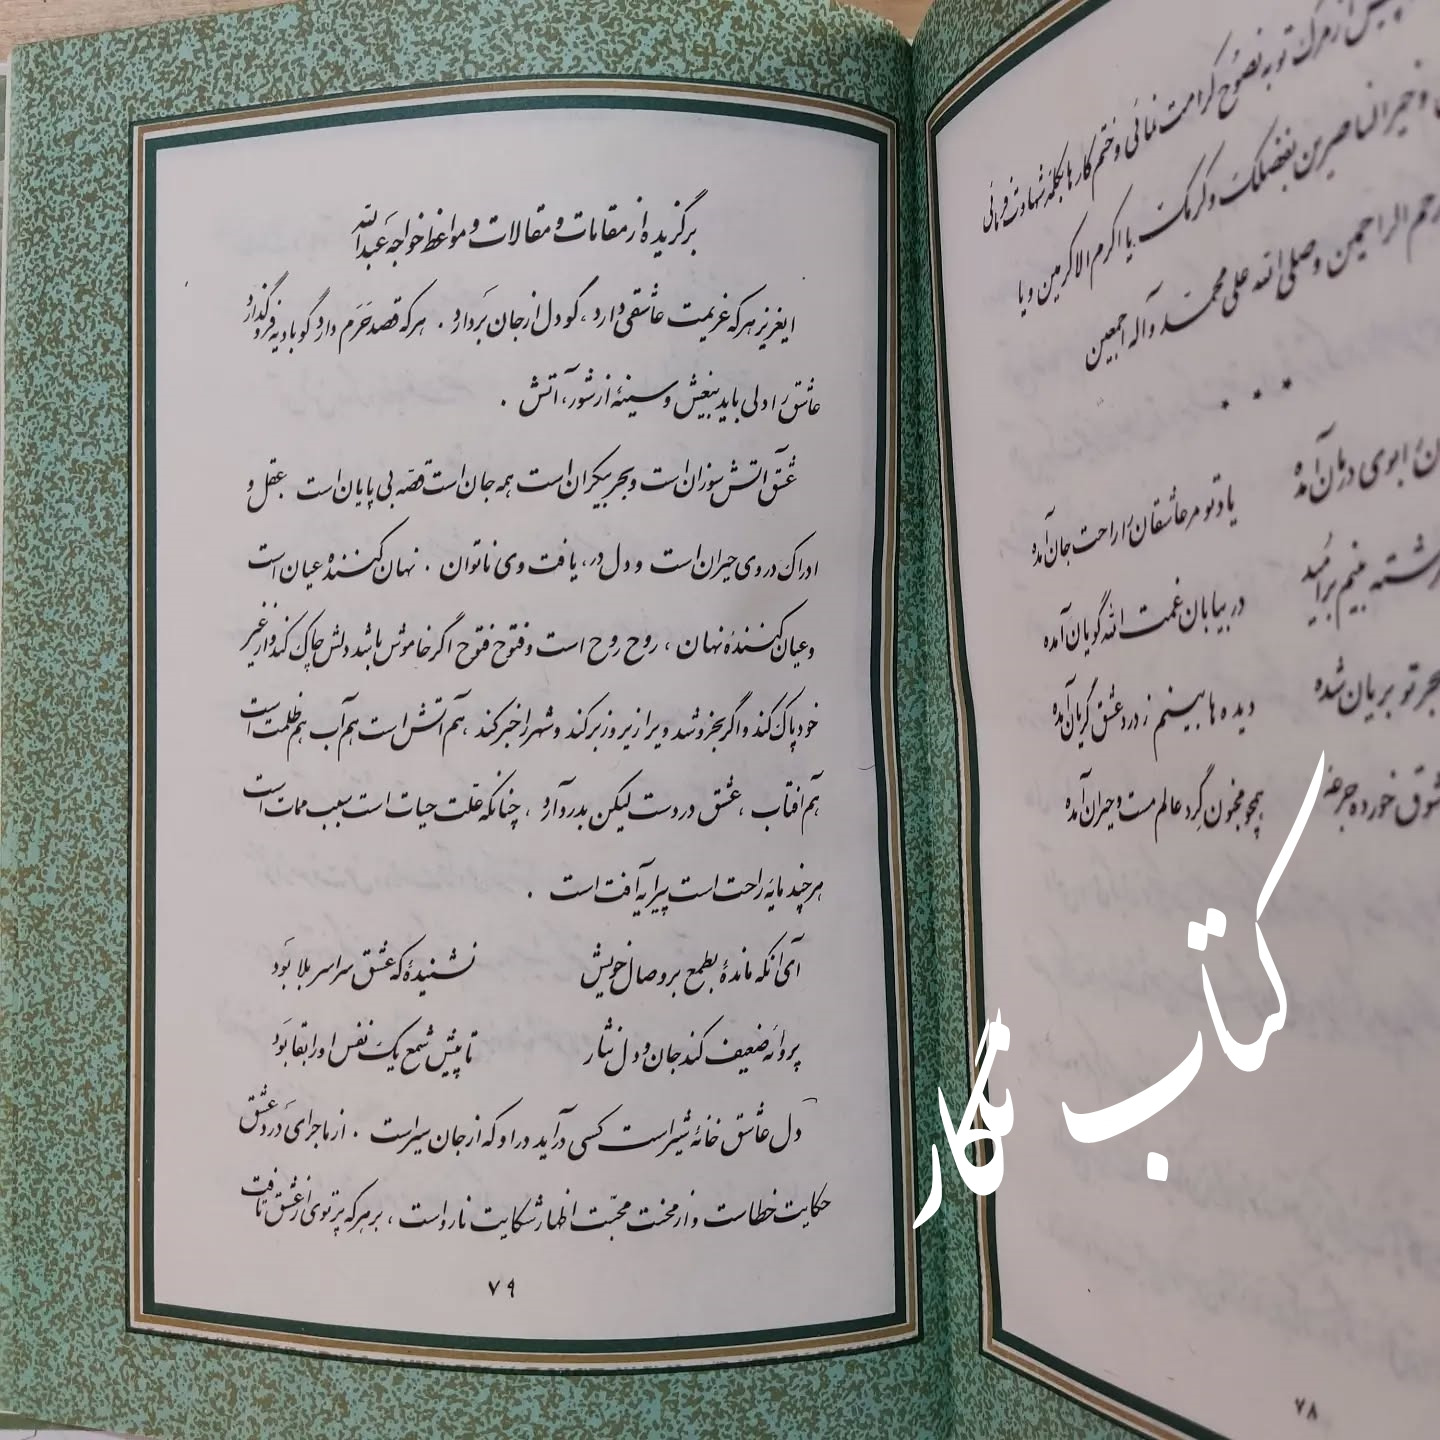 پیش از مرگ توبه نصوح کرامت نمائی و ختم کارها بکلمه شهادت فرمائی
و خیر الناصرین بفضلک و کرمک یا اکرم الاکرمین و یا
رحم الراحمین وصلی الله علی محمد و آله اجمعین
* * *
یاد تو مر عاشقان را راحت جان آمده
در بیابان غمت الله گویان آمده
هجر تو بریان شده دیده ها بینم ز درد عشق گریان آمده
شوق خورده جرعه همچو مجنون گرد عالم مست و حیران آمده
۷۸
برگزیده از مقامات و مقالات و مواعظ خواجه عبدالله
ایعزیز هر که عزیمت عاشقی دارد، گو دل از جان بردارد . هر که قصد حرم دارد گو بادیه فرو گذارد
عاشق را دلی باید بیغش و سینهٔ از شور، آتش .
عشق آتش سوزان است و بحر بیکران است همه جان است قصه بی پایان است عقل و
ادراک در وی حیران است و دل در، یافت وی ناتوان . نهان کنندهٔ عیان است
و عیان کنندهٔ نهان ، روح روح است و فتوح فتوح اگر خاموش باشد دلش چاک کند و از غیر
خود پاک کند و اگر بخروشد ویرا زیر و زبر کند و شهر را خبر کند ، هم آتش است هم آب هم ظلمت است
هم افتاب ، عشق دردست لیکن بدرد آرد ، چنانکه علت حیات است سبب ممات است
هر چند مایه راحت است پیرایه آفت است .
آی آنکه ماندهٔ بطمع بر وصال خویش نشنیدهٔ که عشق سراسر بلا بود
پروانه ضعیف کند جان و دل نثار تا پیش شمع یک نفس او را بقا بود
دل عاشق خانهٔ شیر است کسی درآید در او که از جان سیر است . از ماجرای درد عشق
حکایت خطاست و از محنت محبت اظهار شکایت نارواست ، بر هر که پرتوی از عشق تافت
۷۹
کتاب نگار